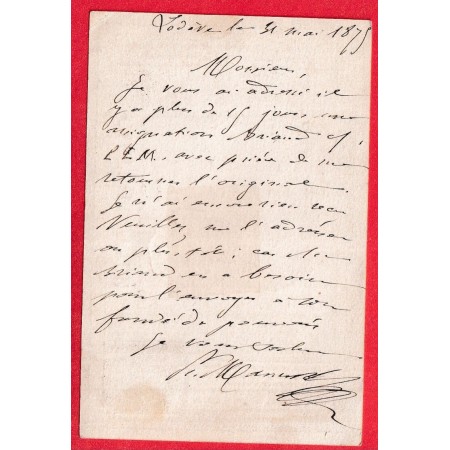 Lodève le 31 mai 1875
Monsieur,
Je vous ai adressé il
y a plus de 15 jours, une
assignation Briand cf
P.L.M., avec prière de me
retourner l'original.
Je n'ai encore rien reçu
Veuillez me l'adresser
au plus tôt ; car
Briand en a besoin
pour l'envoyer à son
fondé de pouvoirs
Je vous salue